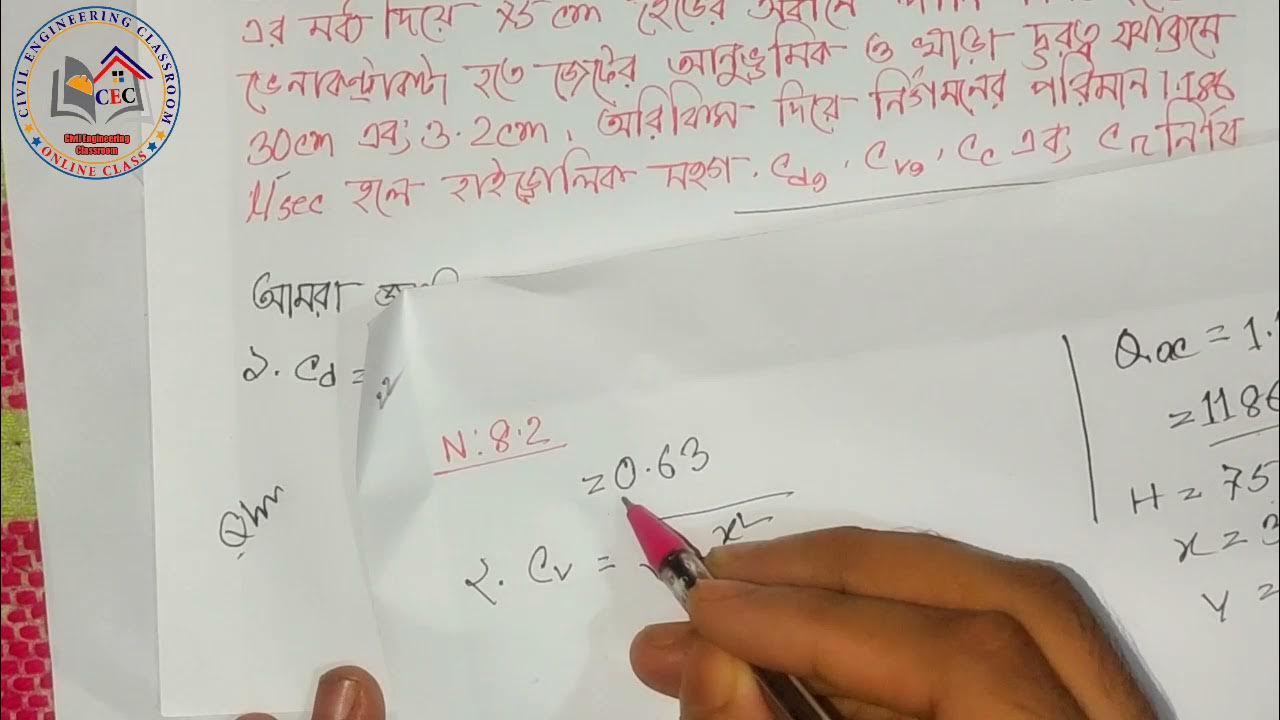 CIVIL ENGINEERING CLASSROOM
CEC
Civil Engineering
Classroom
ONLINE CLASS
এর মধ্য দিয়ে 75 cm হেডের অধীনে
ভেনাকন্ট্রাকটা হতে জেটের আনুভূমিক ও খাড়া দুরত্ব যথাক্রমে
30cm এবং 3.2cm. অরিফিস দিয়ে নির্গমনের পরিমান 1.186
l/sec হলে হাইড্রোলিক সহগ. Cd, Cv, Cc এবং Cr নির্ণয়
আমরা
১. Cd =
N: 8.2
= 0.63
২. Cv =
x²
Qac = 1.
= 1186
H = 75
x = 3
y =